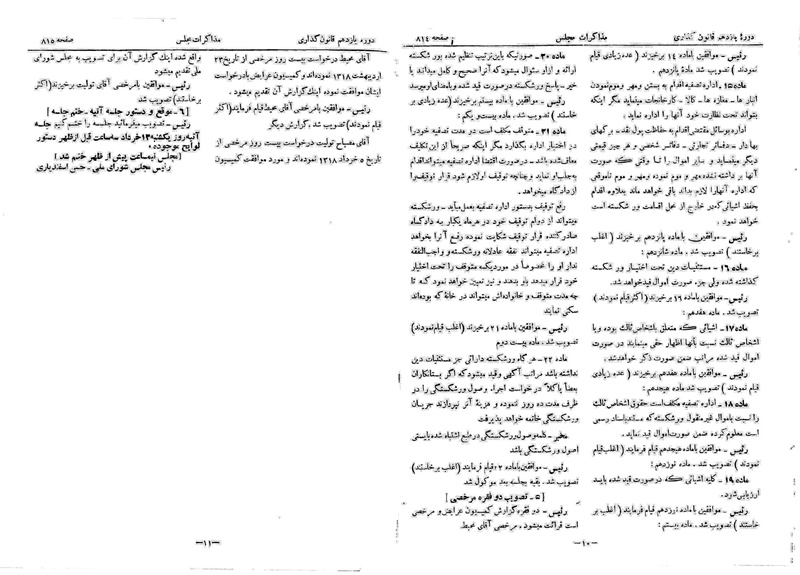 دورهٔ یازدهم قانون گذاری مذاکرات مجلس صفحه ۸۱۴
رئیس ـ موافقین باماده ۱۴ برخیزند ( عده زیادی قیام
نمودند ) تصویب شد مادهٔ پانزدهم.
ماده۱۵ ـ اداره تصفیه اقدام به بستن ومهر وموم‌نمودن
انبار ها ـ مغازه ها ـ کالا ـ کارخانجات مینماید مگر اینکه
بتواند تحت نظارت خود آنها را اداره نماید .
اداره بوسائل مقتضی اقدام به حفاظت پول نقد ـ برگهای
بها دار ـ دفاتر تجارتی ـ دفاتر شخصی و هر چیز قیمتی
دیگر مینماید و سایر اموال را تا وقتی که صورت
آنها بر داشته نشده مهر و موم نموده ومهر و موم تاموقعی
که اداره آنهارا لازم بداند باقی خواهد ماند بعلاوه اقدام
بحفظ اشیائی که در خارج از محل اقامت ور شکسته است
خواهد نمود .
رئیس ـ موافقین باماده پانزدهم برخیزند ( اغلب
برخاستند ) تصویب شد . ماده شانزدهم :
ماده ۱۶ ـ مستثنیات دین تحت اختیار ور شکسته
گذاشته شده ولی جزء صورت اموال قید خواهد شد.
رئیس ـ موافقین باماده ۱۶ برخیزند (اکثرقیام نمودند)
تصویب شد . ماده هفدهم :
ماده۱۷ـ اشیائی که متعلق باشخاص ثالث بوده ویا
اشخاص ثالث نسبت بآنها اظهار حقی مینمایند در صورت
اموال قید شده مراتب ضمن صورت ذکر خواهدشد.
رئیس ـ موافقین باماده هفدهم برخیزند ( عده زیادی
قیام نمودند ) تصویب شد ماده هیجدهم :
ماده ۱۸ ـ اداره تصفیه مکلف است حقوق اشخاص ثالث
را نسبت باموال غیرمنقول ورشکسته که مستندباسناد رسمی
است معلوم کرده ضمن صورت اموال قید نماید.
رئیس ـ موافقین باماده هیجدهم قیام فرمایند ( اغلب قیام
نمودند ) تصویب شد . ماده نوزدهم :
ماده ۱۹ ـ کلیه اشیائی که در صورت قید شده باید
ارزیابی شود.
رئیس ـ موافقین باماده نوزدهم برخیزند ( اغلب
برخاستند ) تصویب شد . ماده بیستم :
ماده ۲۰ ـ صورتیکه باین ترتیب تنظیم شده بور شکسته
ارائه و ازاو سئوال میشود که آنرا صحیح و کامل میداند یا
خیر ـ پاسخ ورشکسته در صورت قید شده و بامضای اومیرسد
رئیس ـ موافقین باماده بیستم برخیزند ( عده زیادی بر
خاستند ) تصویب شد . ماده بیست و یکم :
ماده ۲۱ ـ متوقف مکلف است در مدت تصفیه خود را
در اختیار اداره بگذارد مگر اینکه صریحاً از این تکلیف
معاف شده باشد ـ درصورت اقتضا اداره تصفیه میتواند اقدام
بجلب او نماید و چنانچه توقیف اولازم شود قرار توقیف‌را
ازدادگاه میخواهد.
رفع توقیف بدستور اداره تصفیه بعمل میاید ـ ورشکسته
میتواند از دوام توقیف خود در هرماه یکبار به دادگاه
صادر کننده قرار توقیف شکایت نموده رفع آنرا بخواهد
اداره تصفیه میتواند نفقه عادلانه ورشکسته و واجب‌النفقه
ندار او را خصوصاً در موردیکه متوقف را تحت اختیار
خود قرار میدهد باو بدهد و نیز تعیین خواهد نمود که تا
چه مدت متوقف و خانواده‌اش میتواند در خانهٔ که بوده‌اند
سکنی نمایند
رئیس ـ موافقین باماده۲۱ برخیزند (اغلب قیام‌نمودند)
تصویب شد . ماده بیست دوم
ماده ۲۲ ـ هر گاه ورشکسته دارائی جز مستثنیات دین
نداشته باشد مراتب آگهی وقید میشود که اگر بستانکاران
بعضاً یاکلاً در خواست اجراء وصول ورشکستگی را در
ظرف مدت ده روز ننموده و هزینهٔ آنر نپردازند جریان
ورشکستگی خاتمه خواهد پذیرفت
مخبر ـ کلمه وصول ورشکستگی درطبع اشتباه شده بایستی
اصول ورشکستگی باشد
رئیس ـ موافقین باماده ۲۲ قیام فرمایند (اغلب برخاستند)
تصویب شد. بقیه بجلسه بعد موکول شد
[ ۵ ـ تصویب دو فقره مرخصی ]
رئیس ـ دو فقره گزارش کمیسیون عرایض و مرخصی
است قرائت میشود . مرخصی آقای محیط
ـ۱۰ـ
دوره یازدهم قانون گذاری مذاکرات مجلس صفحه ۸۱۵
آقای محیط درخواست بیست روز مرخصی از تاریخ ۲۳
اردیبهشت ۱۳۱۸ نموده‌اند و کمیسیون عرایض بادرخواست
ایشان موافقت نموده اینک گزارش آن تقدیم میشود .
رئیس ـ موافقین بامرخصی آقای محیط قیام فرمایند(اکثر
قیام نمودند) تصویب شد. گزارش دیگر
آقای مصباح تولیت درخواست بیست روز مرخصی از
تاریخ ۵ خرداد ۱۳۱۸ نموده‌اند و مورد موافقت کمیسیون
واقع شده اینک گزارش آن برای تصویب به مجلس شورای
ملی تقدیم میشود
رئیس ـ موافقین بامرخصی آقای تولیت برخیزند(اکثر
برخاستند) تصویب شد
[ ۶ ـ موقع و دستور جلسه آتیه ـ ختم جلسه ]
رئیس ـ تصویب میفرمائید جلسه را ختم کنیم جلسه
آتیه روز یکشنبه ۱۳ خرداد سه ساعت قبل ازظهر دستور
لوایح موجوده .
(مجلس نیم‌ساعت پیش از ظهر ختم شد)
رئیس مجلس شورای ملی ـ حسن اسفندیاری
ـ۱۱ـ